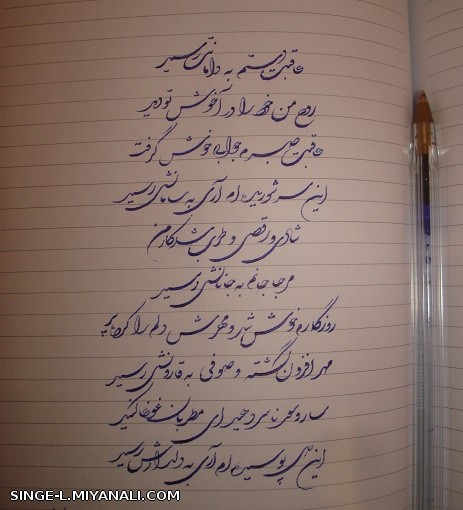 عاقبت دستم به دامانش رسید
روح من خود را در آغوش تو دید
عاقبت صبرم جوابه خوش گرفت
این سر شوریده ام آری به سامانش رسید
شادی و رقص و طرب شد کار من
مرحبا جانم به جانانش رسید
روزگارم خوش شد و مهرش دلم را کرده پر
مهر افزون گشته و صوفی به قارونش رسید
ساز و سرنا سر دهید ای مطربان غوغا کنید
این پوسیده ام آری به دلدارش رسید
SINGE-L.MIYANALI.COM